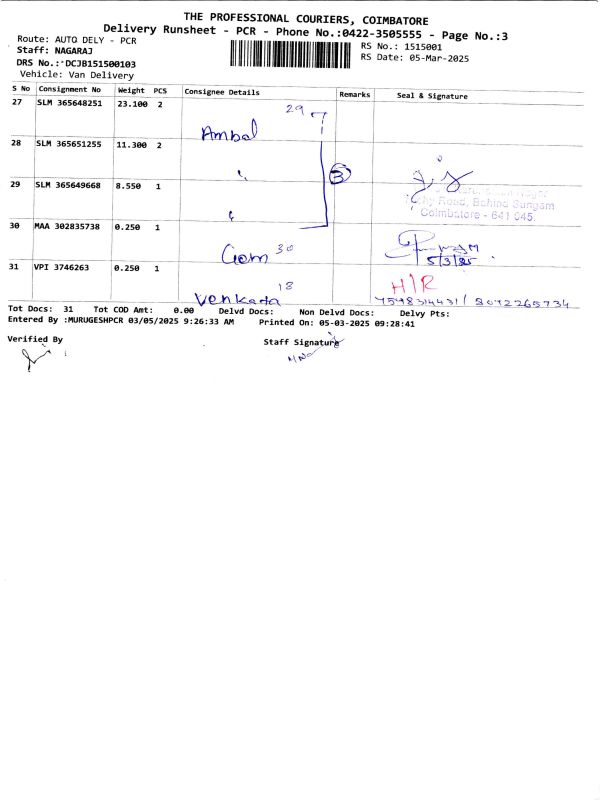 THE PROFESSIONAL COURIERS, COIMBATORE
Delivery Runsheet - PCR - Phone No.:0422-3505555 - Page No.:3
Route: AUTO DELY - PCR
RS No.: 1515001
Staff: NAGARAJ
RS Date: 05-Mar-2025
DRS No.: DCJB151500103
Vehicle: Van Delivery
S No Consignment No Weight PCS Consignee Details Remarks Seal & Signature
27 SLM 365648251 23.100 2 29
Ambal
28 SLM 365651255 11.300 2
3
29 SLM 365649668 8.550 1
Road, Behind Sungam
Coimbatore - 641 045.
30 MAA 302835738 0.250 1
30
5/3/25
31 VPI 3746263 0.250 1 18
H/R
Venkada
Tot Docs: 31 Tot COD Amt: 0.00 Delvd Docs: Non Delvd Docs: Delvy Pts:
Entered By :MURUGESHPCR 03/05/2025 9:26:33 AM Printed On: 05-03-2025 09:28:41
Verified By Staff Signature